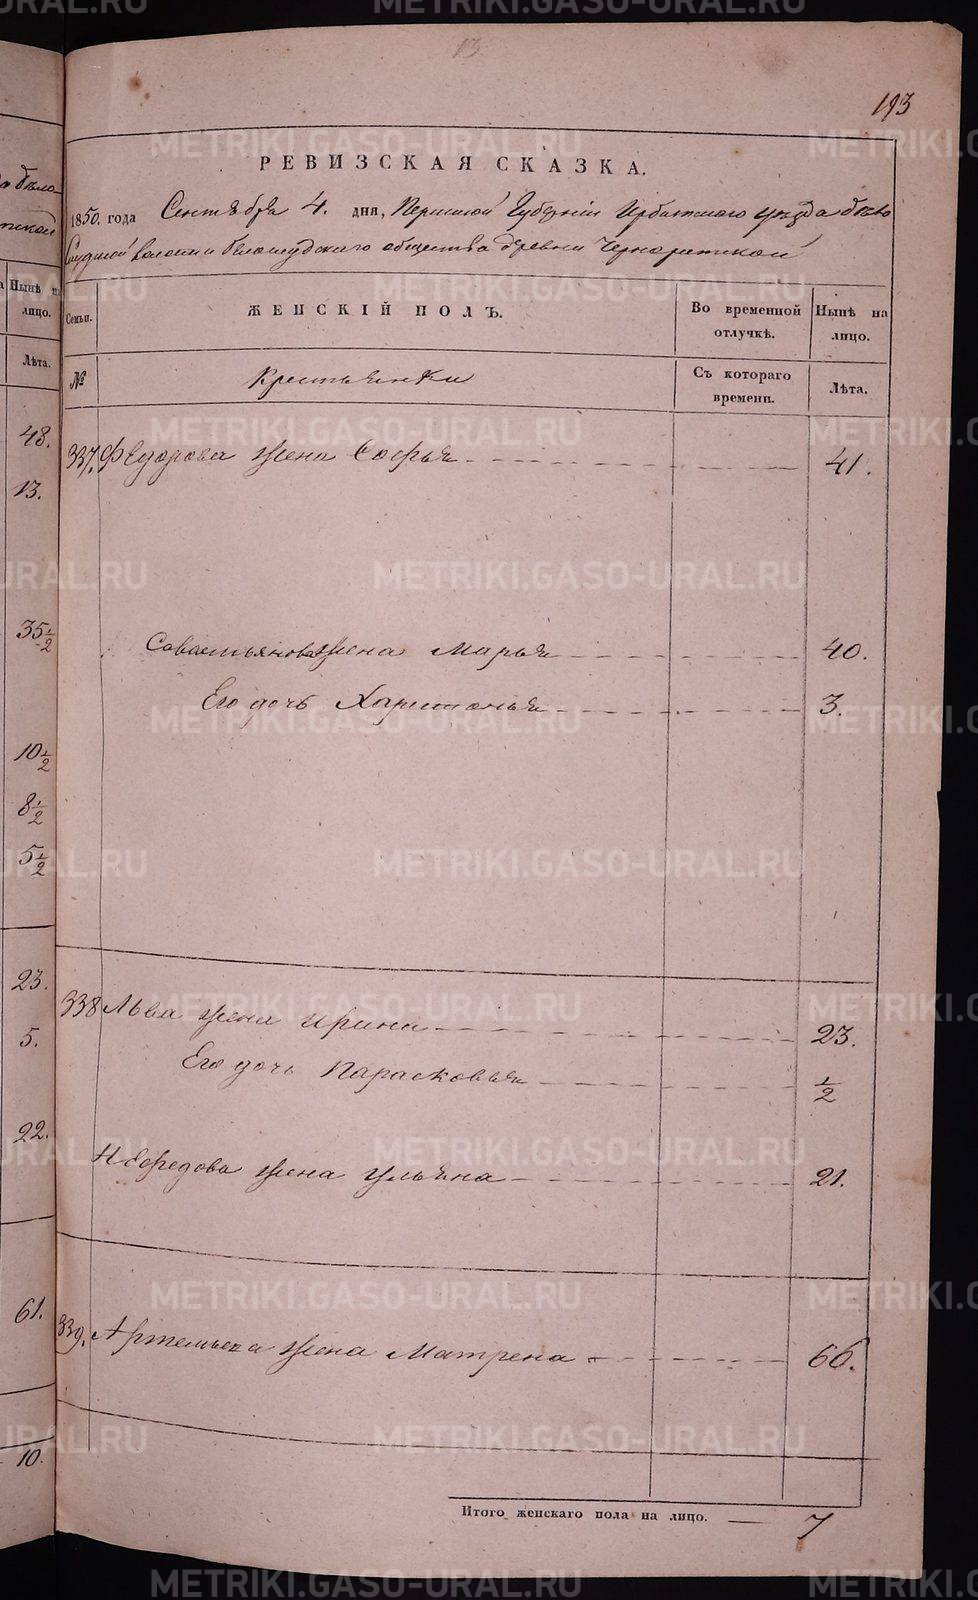 13.
193
РЕВИЗСКАЯ СКАЗКА.
1850. года Сентября 4. дня, Пермской Губерніи Ирбитскаго уѣзда бѣло
Слудской волости белослудскаго общества деревни
ЖЕНСКІЙ ПОЛЪ.
Во временной отлучкѣ.
Нынѣ на лицо.
Семьи.
№
Крестьянки
Съ котораго времени.
Лѣта.
337. Федорова жена Софья 41.
Савостьянова жена Марья 40.
Его дочь Харитонья 3.
338 Льва жена Ирина 23.
Его дочь Парасковья ½
Нефедова жена Ульяна 21.
339. Артемьева жена Матрена 66.
Итого женскаго пола на лицо. 7
Нынѣ
лицо.
Лѣта.
48.
13.
35½
10½
8½
5½
23.
5.
22.
61.
10.
METRIKI.GASO-URAL.RU